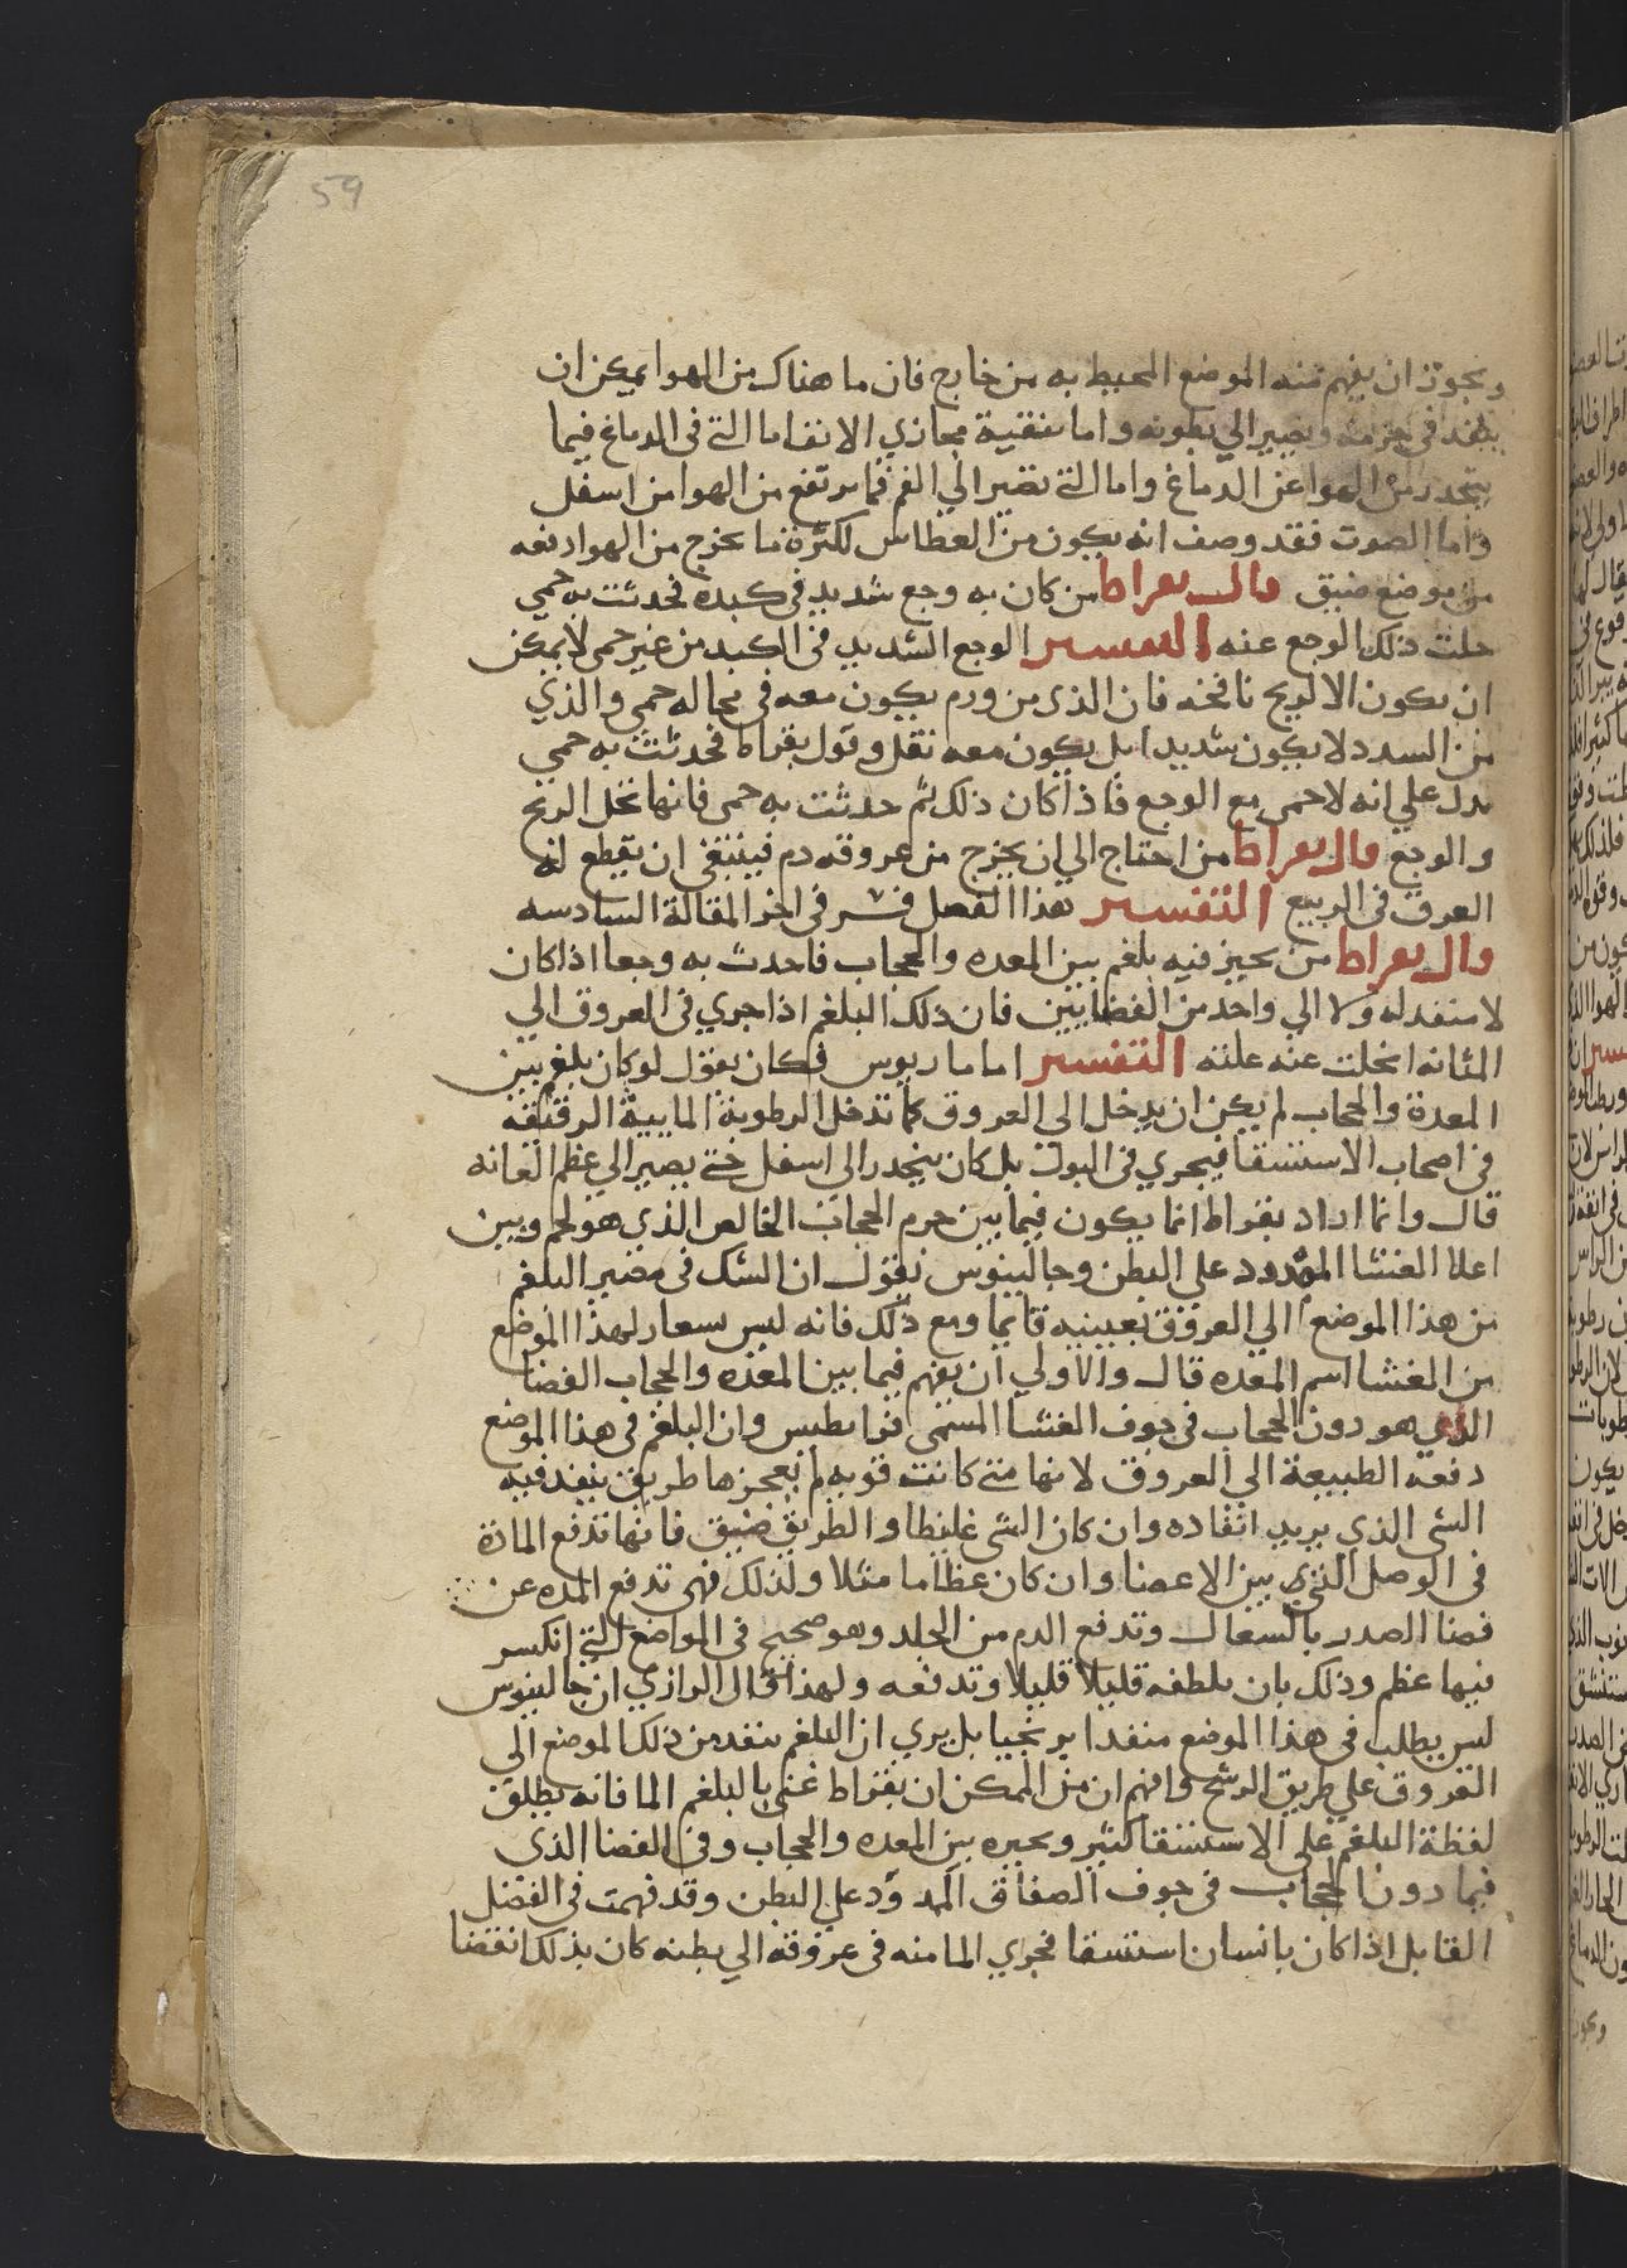 59
ويجوز ان يفهم منه الموضع المحيط به من خارج فان ما هناك من الهوا يمكن ان
ينفذ في جرمه ويصير الي بطونه واما بتنقية مجازي الانف اما التي في الدماغ فيما
يتحدر من الهوا عن الدماغ واما التي تصير الي الفم فما يرتفع من الهوا من اسفل
واما الصوت فقد وصف انه يكون من العطاس لكثرة ما يخرج من الهوا دفعه
من موضع ضيق قال بقراط من كان به وجع شديد في كبده فحدثت به حمي
حلت ذلك الوجع عنه التفسير الوجع الشديد في الكبد من غير حمي لا يمكن
ان يكون الا لريح نافخه فان الذى من ورم يكون معه في محاله حمي والذي
من السدد لا يكون شديدا بل يكون معه ثقل وقول بقراط فحدثت به حمي
يدل علي انه لا حمي مع الوجع فاذا كان ذلك ثم حدثت به حمى فانها تحل الريح
والوجع قال بقراط من احتاج الي ان يخرج من عروقه دم فينبغي ان يقطع له
العرق في الربيع التفسير هذا الفصل فسر في اخر المقالة السادسه
قال بقراط من تحيز فيه بلغم بين المعده والحجاب فاحدث به وجعا اذا كان
لا منفد له ولا الي واحد من الفضايين فان ذلك البلغم اذا جري في العروق الي
المثانه انحلت عنه علته التفسير اما ماريوس فكان يقول لو كان بلغم بين
المعدة والحجاب لم يكن ان يدخل الي العروق كما تدخل الرطوبة المايية الرقيقه
في اصحاب الاستسقا فيجري في البول بل كان ينحدر الي اسفل حتي يصير الي عظم العانه
قال وانما اراد بقراط انما يكون فيما بين جرم الحجاب الخالص الذي هو لحم وبين
اعلا الغشا الممدود علي البطن وجالينوس يقول ان الشك في مصير البلغم
من هذا الموضع الي العروق بعينيه قايما ومع ذلك فانه ليس يسعار لهذا الموضع
من الغشا اسم المعده قال والاولي ان يفهم فيما بين المعده والحجاب الفضا
الذي هو دون الحجاب في جوف الغشا المسمى فرا يطيس وان البلغم في هذا الموضع
دفعه الطبيعة الي العروق لانها متي كانت قويه لم يعجزها طريق ينفد فيه
الشي الذي يريد انفاده وان كان الشي غليظا والطريق ضيق فانها تدفع المادة
في الوصل الذي بين الاعضا وان كان عظاما مثلا ولذلك فهي تدفع المده عن
فضا الصدر بالسعال وتدفع الدم من الجلد وهو صحيح في المواضع التي انكسر
فيها عظم وذلك بان يلطفه قليلا قليلا وتدفعه ولهذا قال الرازي ان جالينوس
ليس يطلب في هذا الموضع منفدا برنجيا بل يري ان البلغم ينفد من ذلك الموضع الي
العروق علي طريق الرشح وافهم ان من الممكن ان بقراط عني بالبلغم الما فانه يطلق
لفظة البلغم علي الاستسقا كثير وبحيزه بين المعده والحجاب وفي الفضا الذى
فيما دون الحجاب في جوف الصفاق الممدود علي البطن وقد فهمت في الفضل
القابل اذا كان بانسان استسقا فجري الما منه في عروقه الي بطنه كان بذلك انقضا